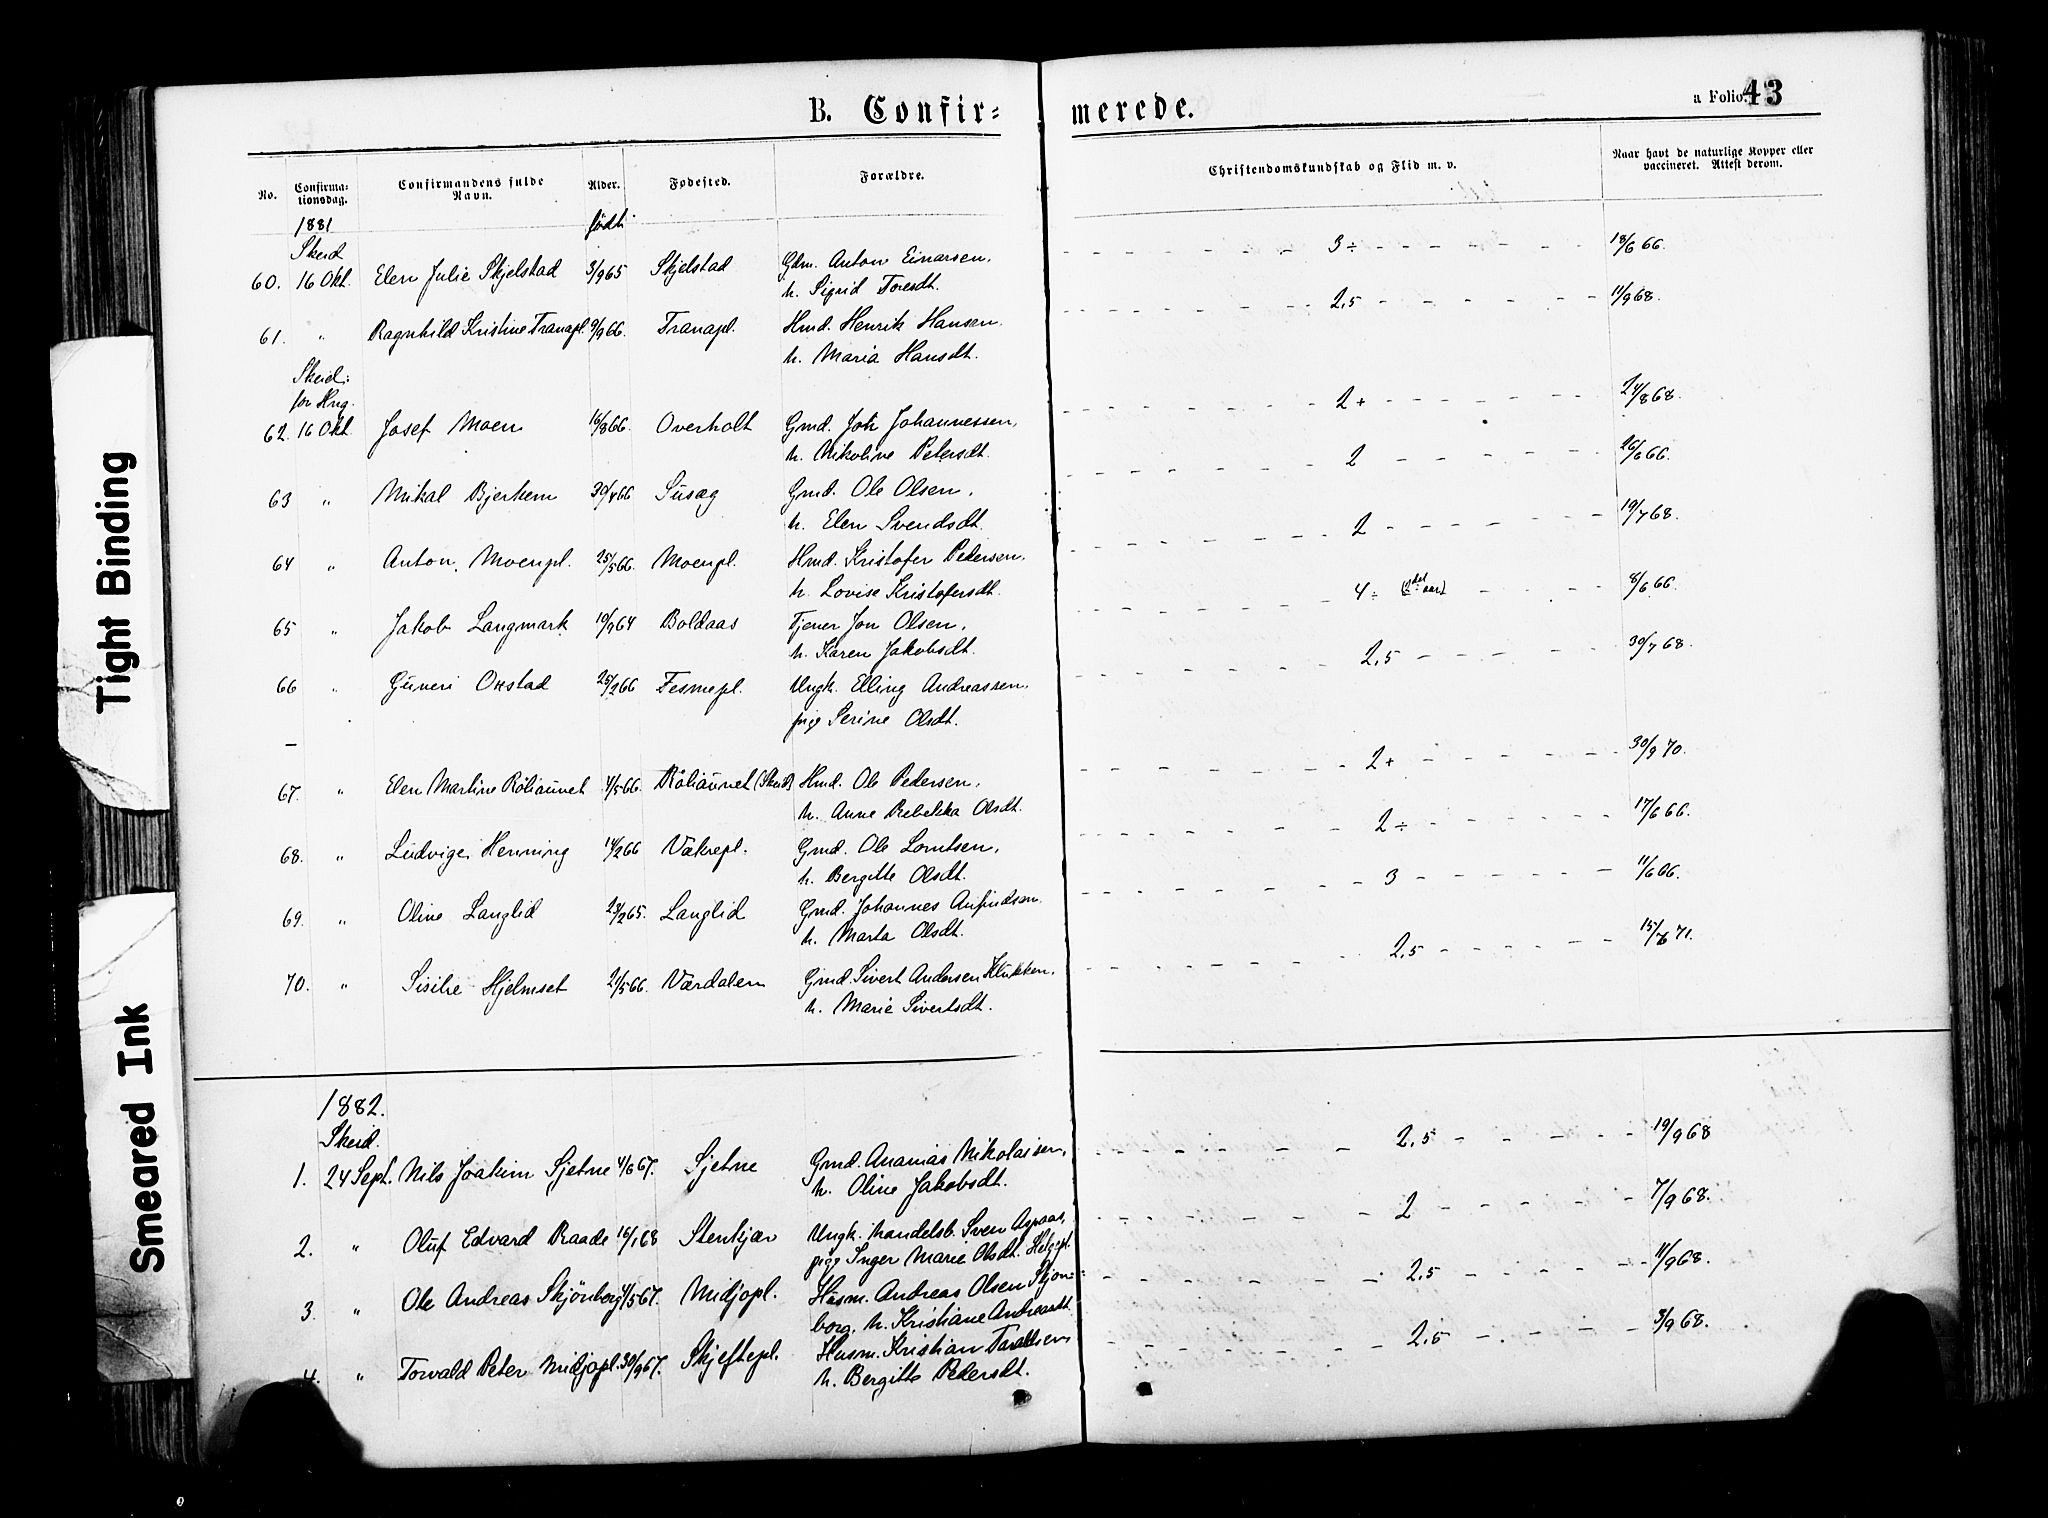 B. Confir= merede.
a Folio. 43
No. Confirma=tionsdag. Confirmandens fulde Navn. Alder. Fødested. Forældre. Christendomskundskab og Flid m. v. Naar havt de naturlige Kopper eller vaccineret. Attest derom.
1881 født:
Skeid
60. 16 Okt. Elen Julie Skjelstad 3/9 65 Skjelstad Gdm. Anton Einarsen, 3÷ 18/6 66.
h. Sigrid Toresdt.
61. " Ragnhild Kristine Tranapl. 9/9 66. Tranapl. Hmd. Henrik Hansen. 2,5 11/9 68.
h. Maria Hansdt.
Skeid:
for Hng.
62. 16 Okt. Josef Moen 16/8 66. Overholt Gmd. Joh Johannessen, 2+ 24/8 68.
h. Nikoline Petersdt.
63 " Mikal Bjerkem 30/4 66 Susæg Gmd. Ole Olsen, 2 26/6 66.
h. Elen Svendsdt.
64 " Anton Moenpl. 25/5 66. Moenpl. Hmd. Kristofer Pedersen, 2 19/7 68.
h. Lovise Kristofersdt.
65 " Jakob Langmark 19/9 64 Boldaas Tjener Jon Olsen, 4÷ (2det aar) 8/6 66.
h. Karen Jakobsdt.
66 " Guneri Oxstad 25/2 66 Fesmepl. Ungk. Elling Andreassen, 2,5 30/7 68.
pige Serine Olsdt.
–
67. " Elen Martine Röliaunet 4/5 66. Röliaunet (Skeid) Hmd. Ole Pedersen, 2+ 30/9 70.
h. Anne Rebekka Olsdt.
68. " Ludvige Henning 14/2 66 Vækrepl. Gmd. Ole Lorntsen, 2÷ 17/6 66.
h. Bergitte Olsdt.
69. " Oline Langlid 23/2 65. Langlid Gmd. Johannes Anfindsen. 3 11/6 66.
h. Marta Olsdt.
70. " Sisilie Hjelmset 21/5 66. Værdalen Gmd. Sivert Andersen Klukken, 2,5 15/6 71.
h. Marie Sivertsdt.
1882.
Skeid.
1. 24 Sept. Nils Joakim Sjetne 4/6 67. Sjetne Gmd. Ananias Nikolaisen, 2,5 19/9 68
h. Oline Jakobsdt.
2. " Oluf Edvard Raade 16/1 68 Stenkjær Ungk. Handelsb. Sven Aspaas, 2 7/9 68.
pige Inger Marie Olsdt. Helgepl.
3. " Ole Andreas Skjönborg 4/5 67. Midjopl. Husm. Andreas Olsen Skjön= 2,5 11/9 68.
borg, h. Kristiane Andreasdt.
4. " Torvald Peter Midjopl. 30/9 67. Skjeftepl. Husm. Kristian Taraldsen 2,5 3/9 68.
h. Bergitte Pedersdt.
Tight Binding
Smeared Ink